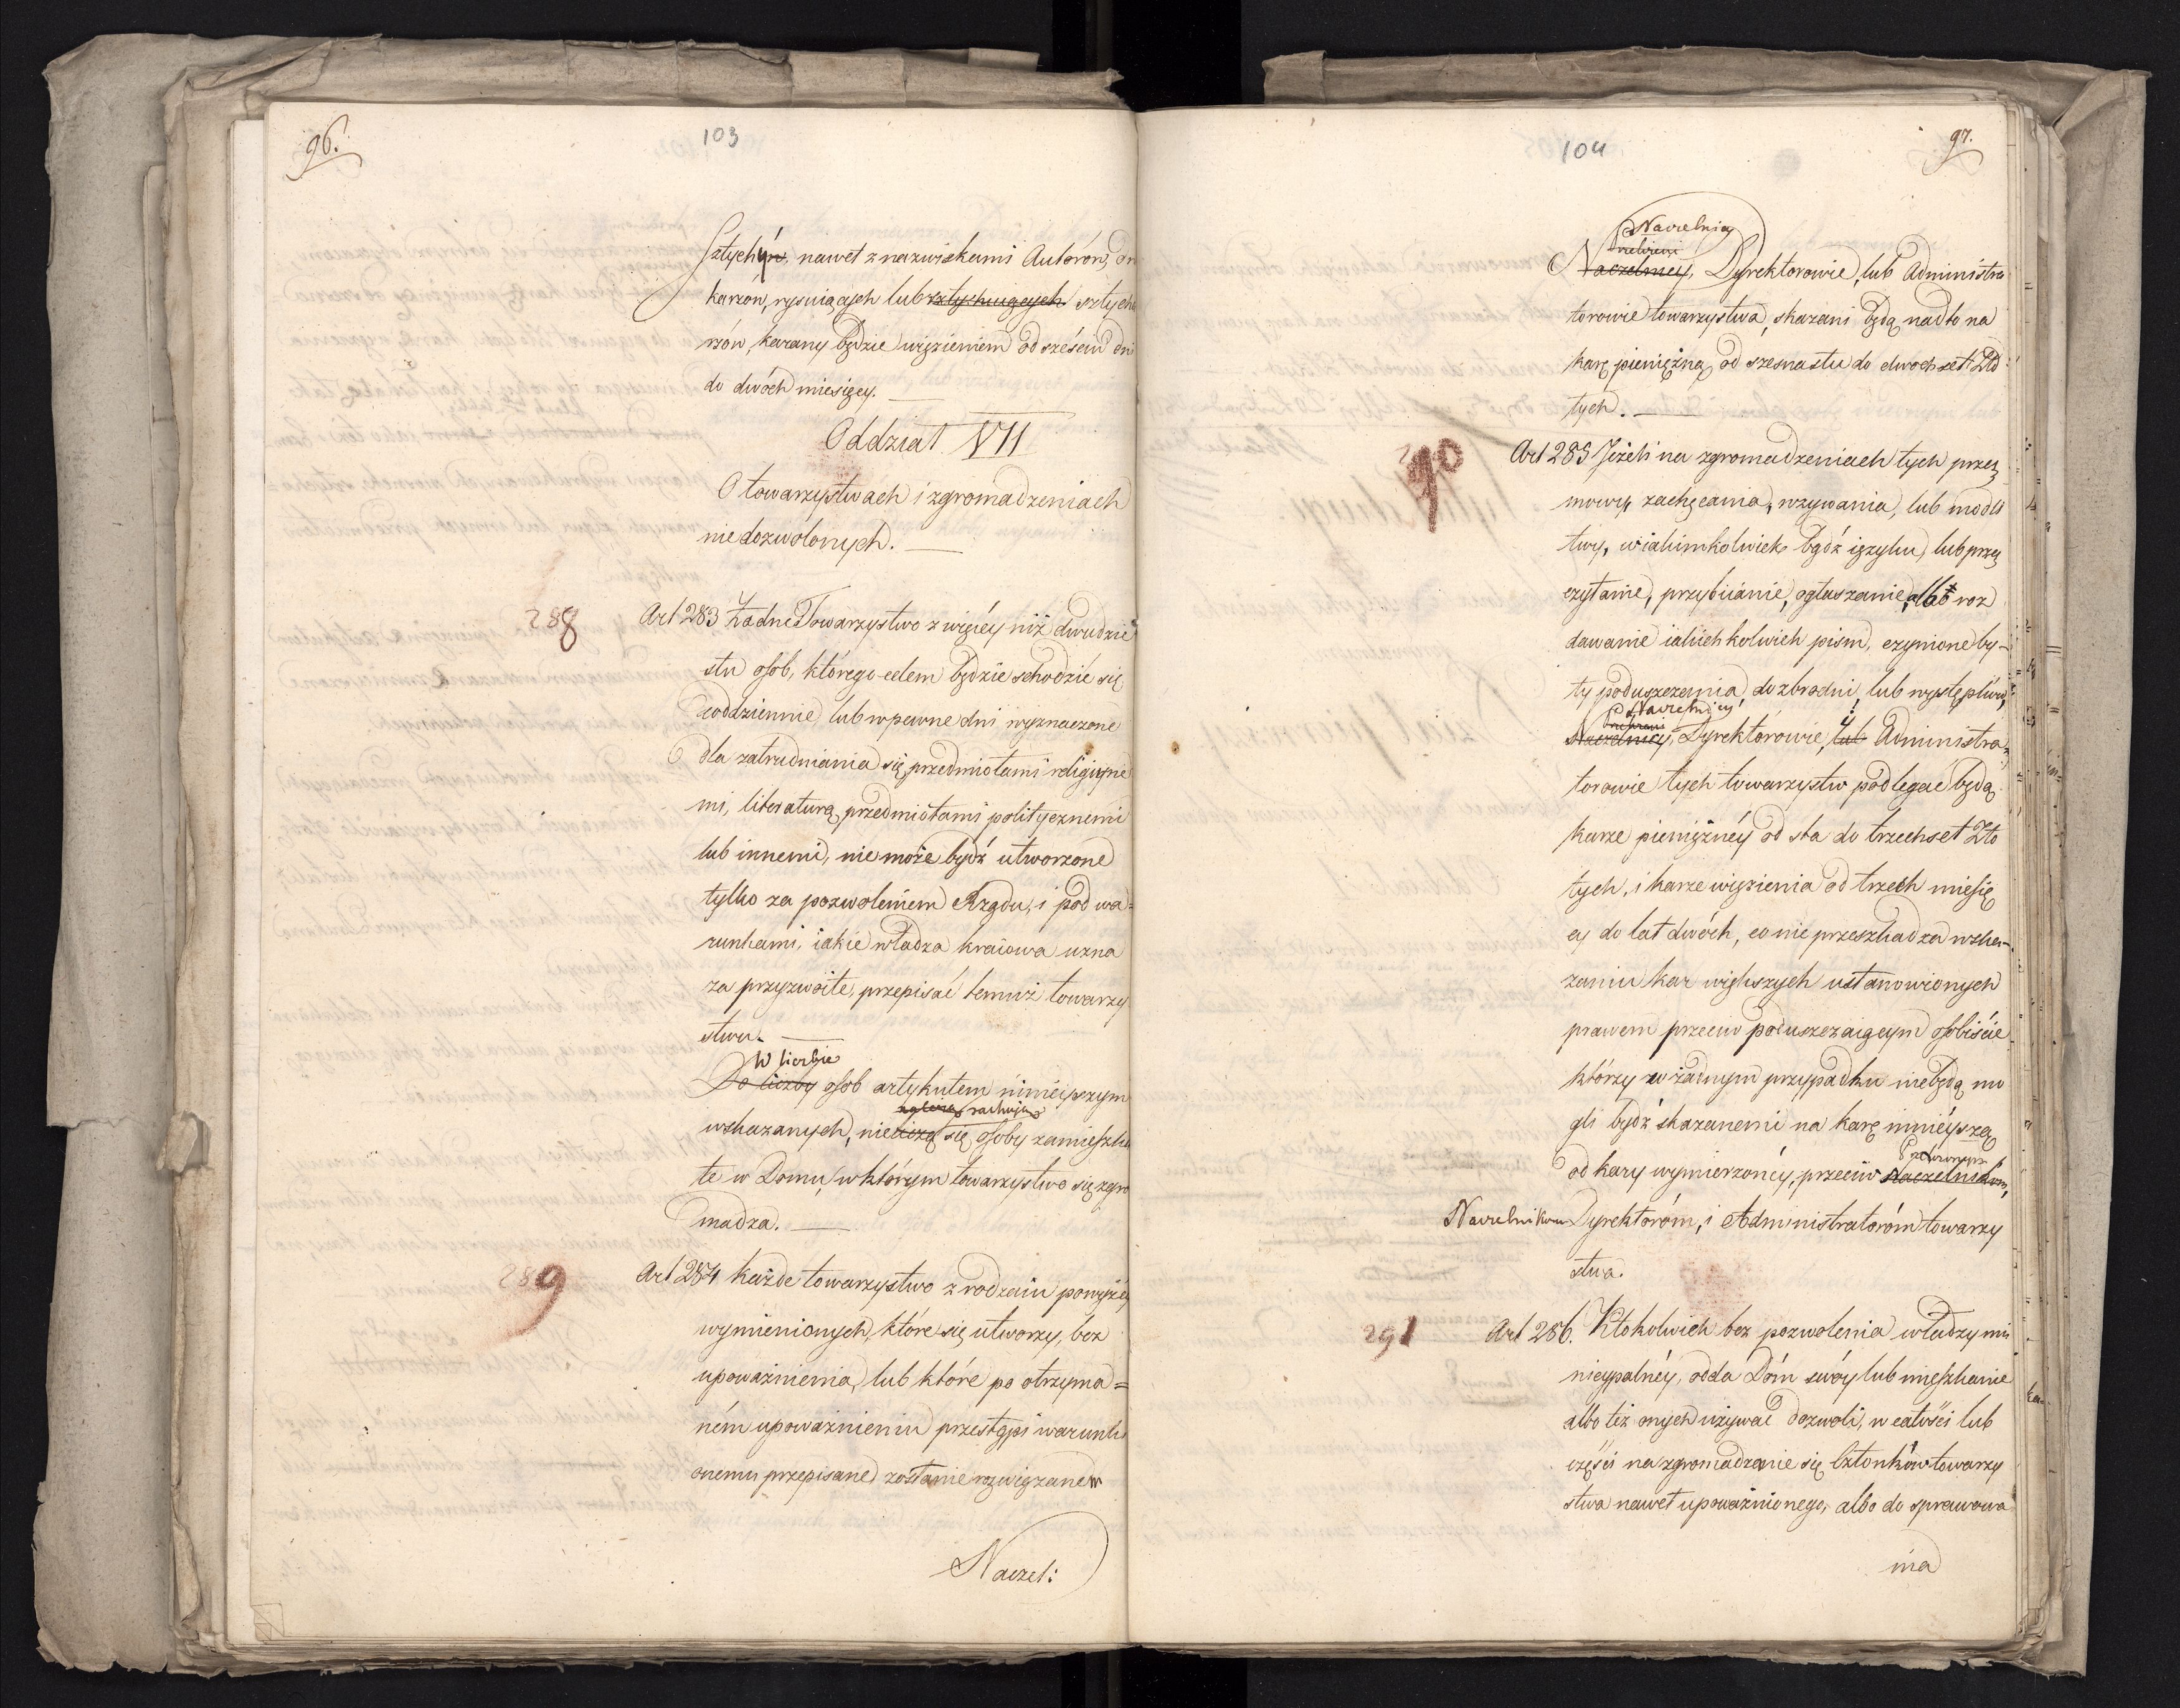 96.
103
Sztychów, nawet z nazwiskami Autorów, dru
karzów, rysuiących lub sztychuiących sztycha
rzów, karany będzie więzieniem od sześciu dni
do dwóch miesięcy.
Oddział VII
O towarzystwach i zgromadzeniach
niedozwolonych.
288
Art 283 Żadne Towarzystwo z więcéy niż dwudzie
stu osób, którego celem będzie schodzić się
codziennie lub w pewne dni wyznaczone
dla zatrudniania się przedmiotami religiyne
mi, literaturą, przedmiotami politycznemi
lub innemi, nie może bydź utworzone
tylko za pozwoleniem Rządu, i pod wa=
runkami, iakie władza kraiowa uzna
za przyzwoite, przepisać temuż towarzy
stwu.
W liczbie
Do liczby osób artykułem ninieyszym
rachuią
wskazanych, nie liczą się osoby zamieszka
łe w Domu, w którym towarzystwo się zgro
madza.
289
Art 284 Każde towarzystwo z rodzaiu powyżéy
wymienionych, które się utworzy, bez
upoważnienia, lub które po otrzyma=
ném upoważnieniu przestąpi warunki
onemu przepisane zostanie rozwiązane
Naczel:
104
97.
Naczelnicy
Naczelnicy, Dyrektorowie, lub Administra
torowie towarzystwa, skazani będą nadto na
karę pieniężną, od szesnastu do dwochset Zło
tych.
290
Art 285 Jeżeli na zgromadzeniach tych przez
mowy, zachęcania, wzywania, lub modli
twy, w iakimkolwiek bądź ięzyku, lub przez
czytanie, przybiianie, ogłaszanie, albo roz
dawanie iakichkolwiek pism, czynione by-
ły poduszczenia do zbrodni, lub występków,
Naczelnicy,
Naczelnicy, Dyrektorowie, lub i Administra=
torowie tych towarzystw podlegać będą
karze pieniężnéy od sta do trzechset Zło
tych, i karze więzienia od trzech miesię
cy do lat dwóch, co nie przeszkadza wska-
zaniu kar większych ustanowionych
prawem przeciw poduszczaiącym osobiście
którzy w żadnym przypadku niebędą mo
gli bydź skazanemi na karę mnieyszą
Przełożonym
od kary wymierzonéy, przeciw Naczelnikom,
Naczelnikom Dyrektorom, i Administratorom towarzy
stwa.
291
Art 286. Ktokolwiek bez pozwolenia władzy mu
nicypalnéy, odda Dóm swóy lub mieszkanie
albo też onych używać dozwoli, w całości lub
części na zgromadzenie się Członków towarzy
stwa nawet upoważnionego, albo do sprawowa
nia